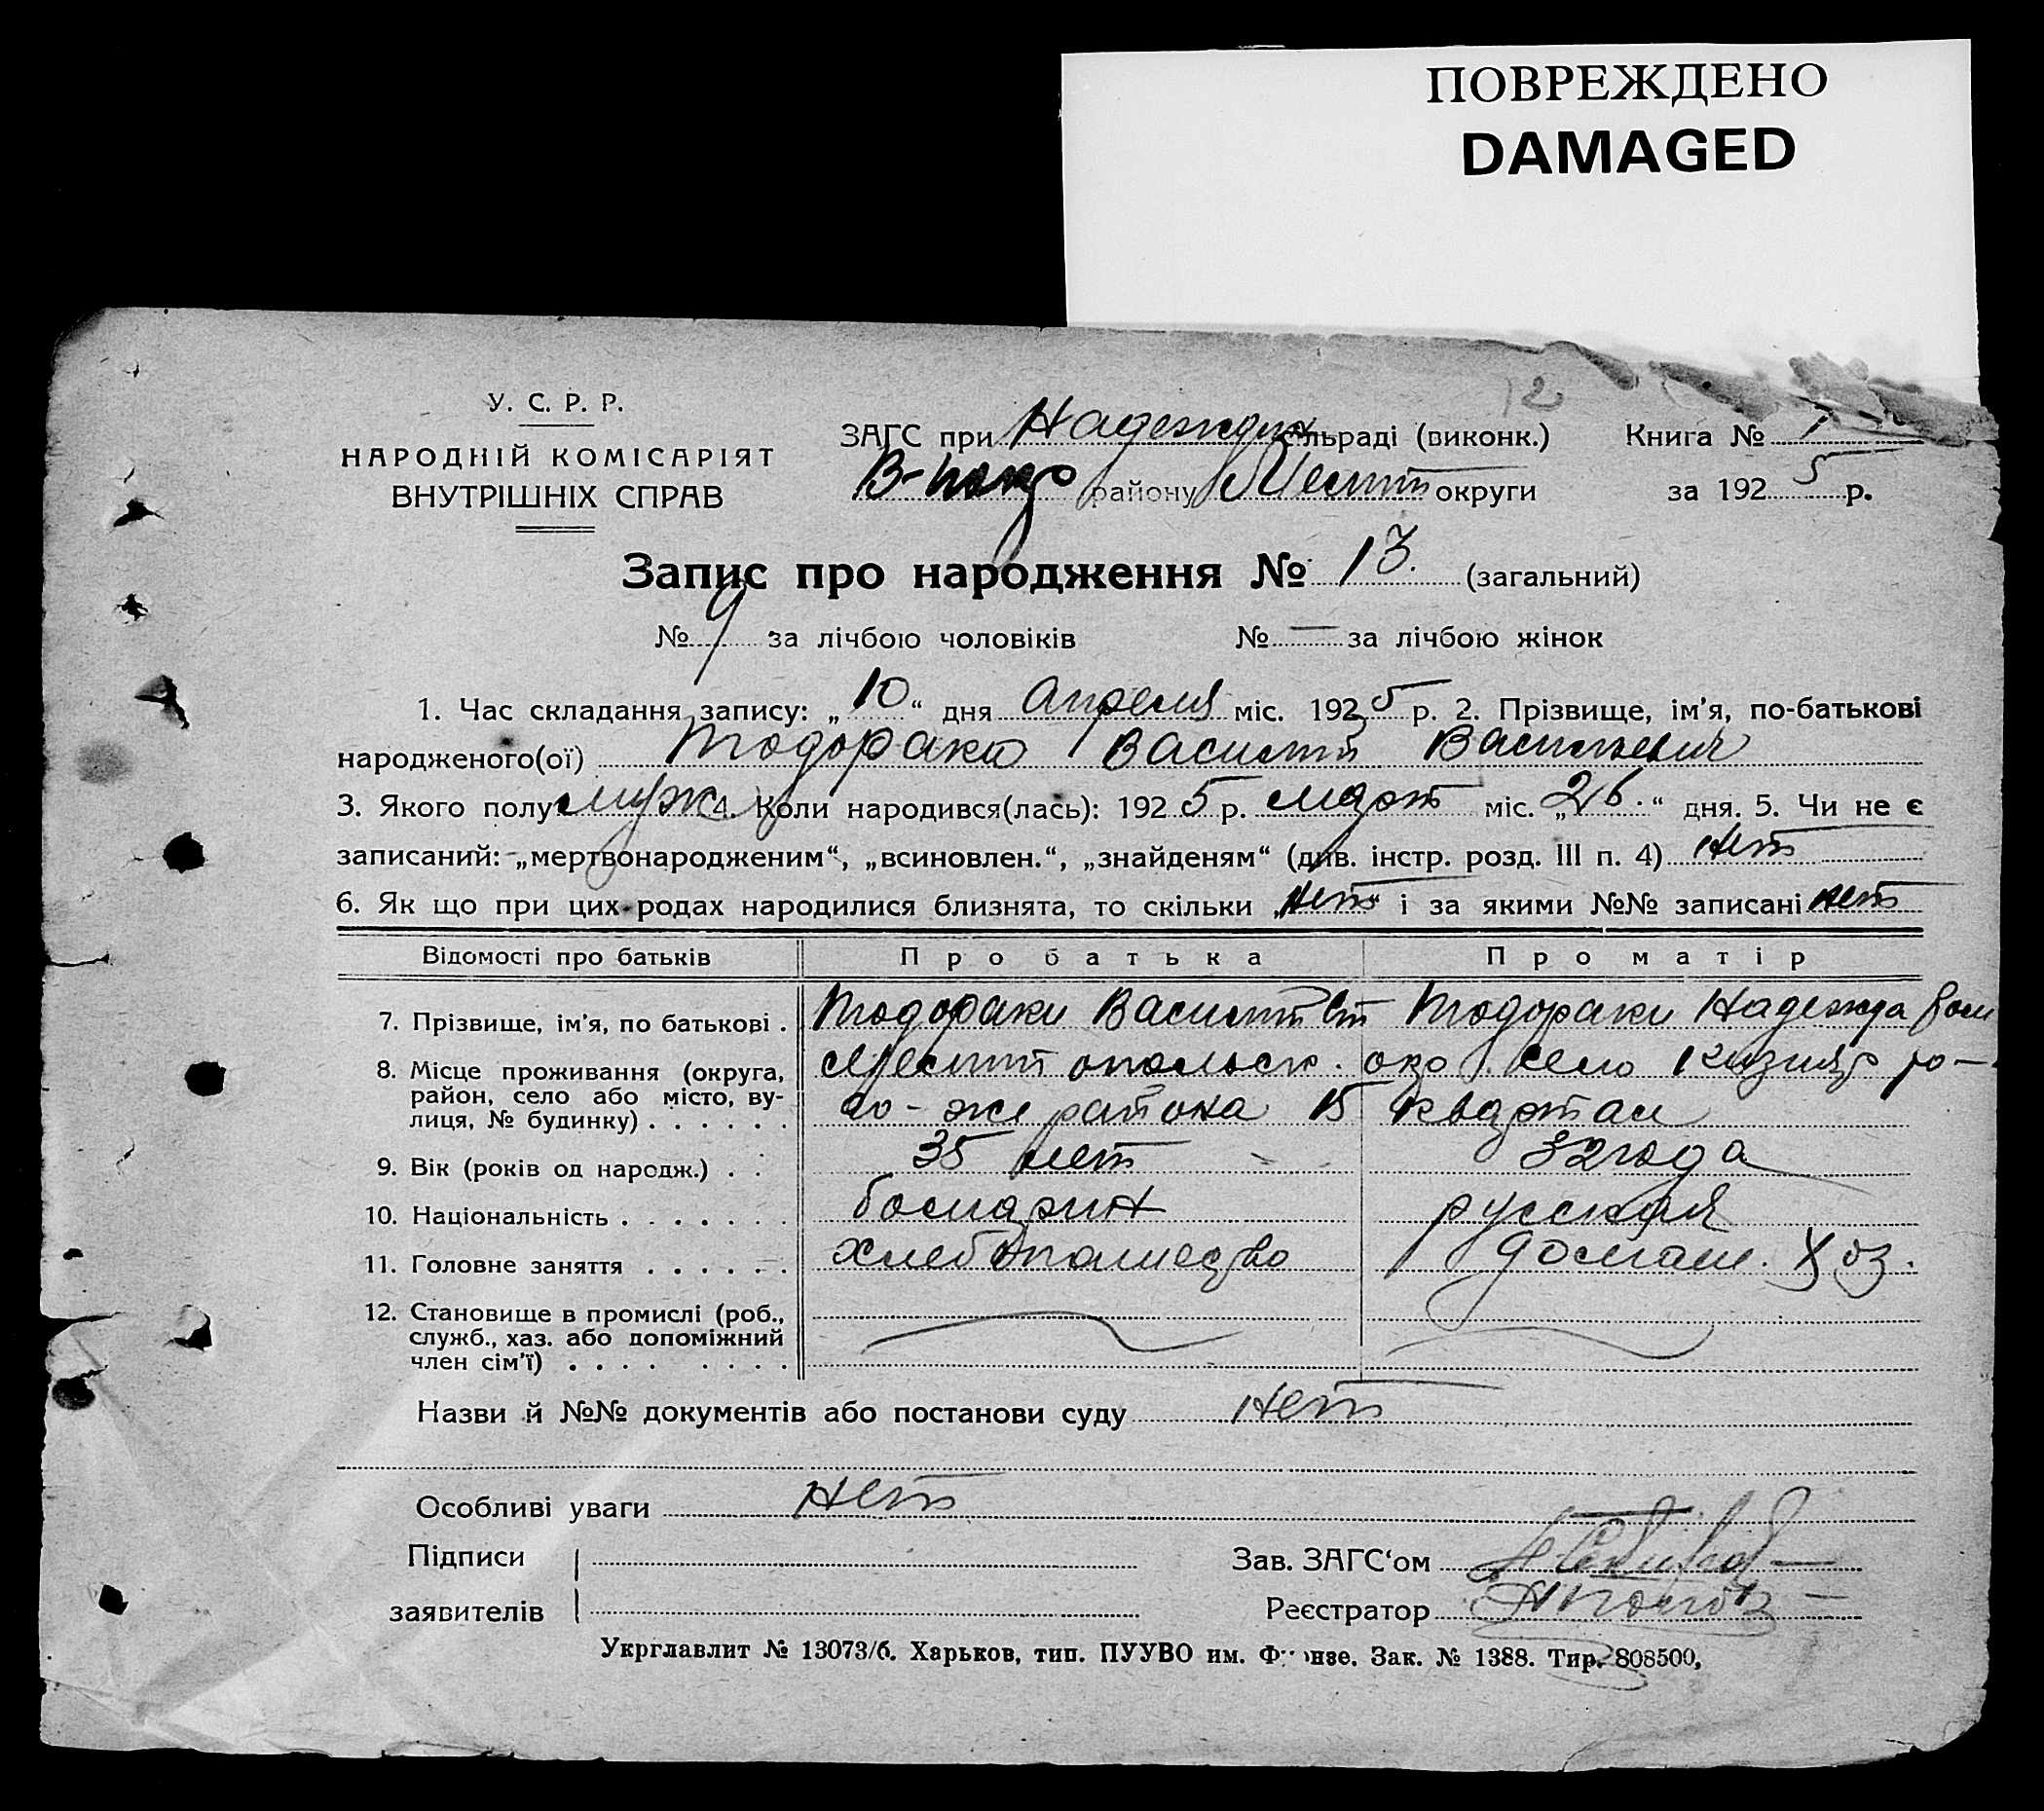 ПОВРЕЖДЕНО
DAMAGED
12
У. С. Р. Р.
НАРОДНІЙ КОМІСАРІЯТ
ВНУТРІШНІХ СПРАВ
ЗАГС при Надеждин сільраді (виконк.) Книга № 1
району Мелит округи за 1925 р.
Запис про народження № 13. (загальний)
№ 9 за лічбою чоловіків № — за лічбою жінок
1. Час складання запису: „10“ дня Апреля міс. 1925 р. 2. Прізвище, ім'я, по-батькові
народженого(ої) Тодораки Василий Васильевич
3. Якого полу муж 4. Коли народився(лась): 1925 р. март міс. „26.“ дня. 5. Чи не є
записаний: „мертвонародженим“, „всиновлен.“, „знайденям“ (див. інстр. розд. III п. 4) нет
6. Як що при цих родах народилися близнята, то скільки „нет“ і за якими №№ записані нет
Відомості про батьків Про батька Про матір
7. Прізвище, ім'я, по батькові . Тодораки Василий Тодораки Надежда
8. Місце проживання (округа, район, село або місто, вулиця, № будинку) . . . . . . Мелитопольск. окр. село
го-же района 15 квартал
9. Вік (років од народж.) . . 35 лет 32 года
10. Національність . . . . . . . болгарин русская
11. Головне заняття . . . . . . хлебопашество домаш. хоз.
12. Становище в промислі (роб., служб., хаз. або допоміжний член сім'ї) . . . . . . . .
Назви й №№ документів або постанови суду нет
Особливі уваги нет
Підписи
заявителів
Зав. ЗАГС'ом
Реєстратор
Укрглавлит № 13073/б. Харьков, тип. ПУУВО им. Фрунзе. Зак. № 1388. Тир. 808500,